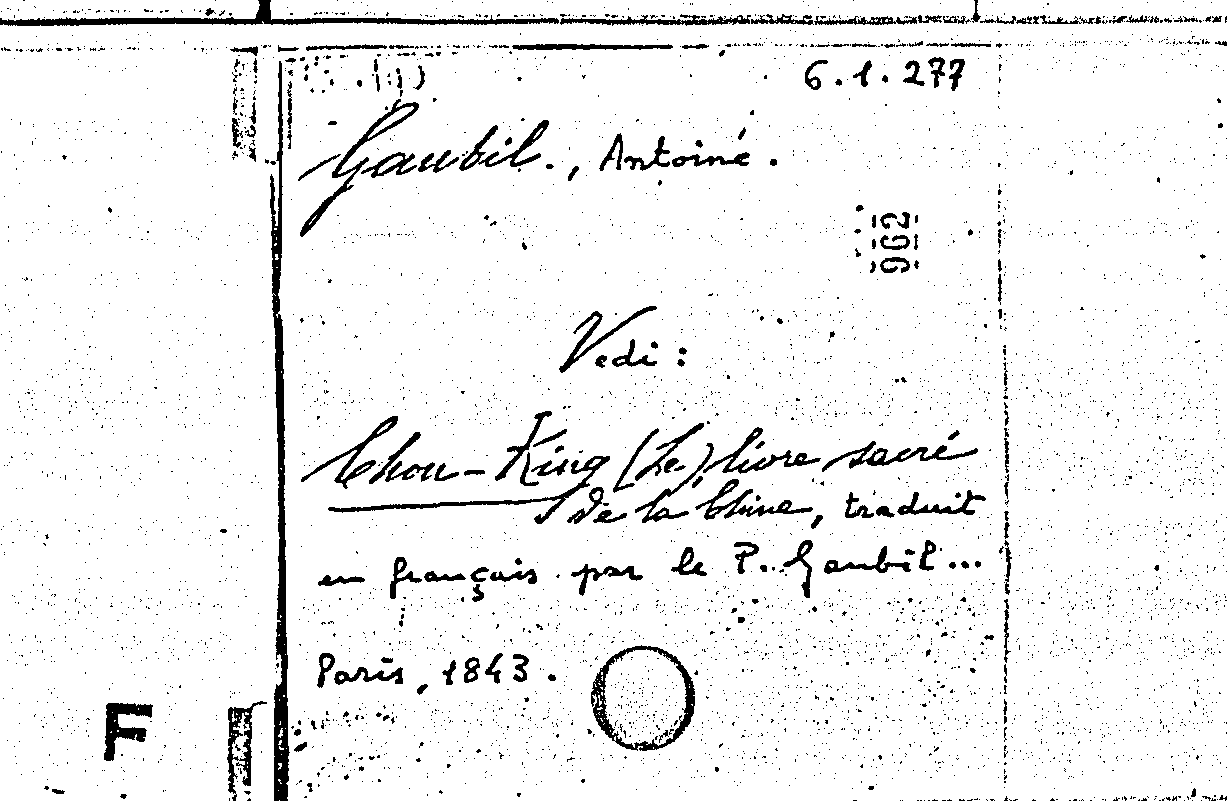 6.1.277
Gaubil., Antoine.
962
Vedi:
Chou-King (Le), livre sacré
de la Chine, traduit
en français par le P. Gaubil...
Paris, 1843.
F